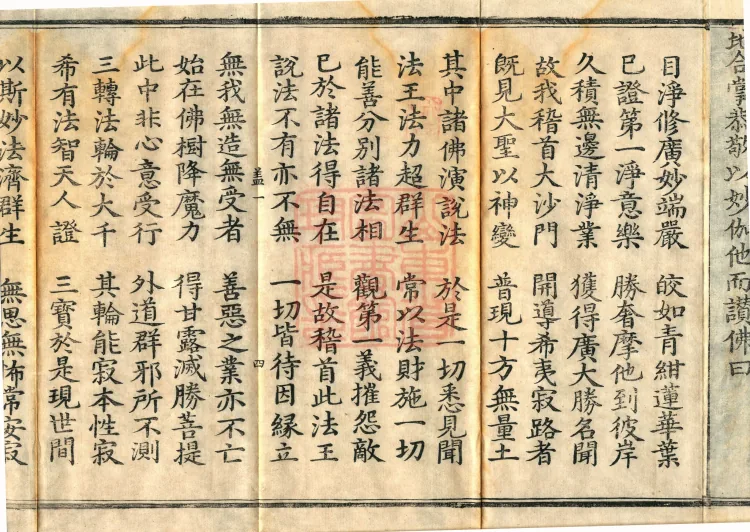 地合掌恭敬以妙伽他而讚佛曰
目淨修廣妙端嚴　皎如青紺蓮華葉
已證第一淨意樂　勝奢摩他到彼岸
久積無邊清淨業　獲得廣大勝名聞
故我稽首大沙門　開導希夷寂路者
既見大聖以神變　普現十方無量土
其中諸佛演說法　於是一切悉見聞
法王法力超群生　常以法財施一切
能善分別諸法相　觀第一義摧怨敵
已於諸法得自在　是故稽首此法王
說法不有亦不無　一切皆待因緣立
盖一　四
無我無造無受者　善惡之業亦不亡
始在佛樹降魔力　得甘露滅勝菩提
此中非心意受行　外道群邪所不測
三轉法輪於大千　其輪能寂本性寂
希有法智天人證　三寶於是現世間
以斯妙法濟群生　無思無怖常安寂